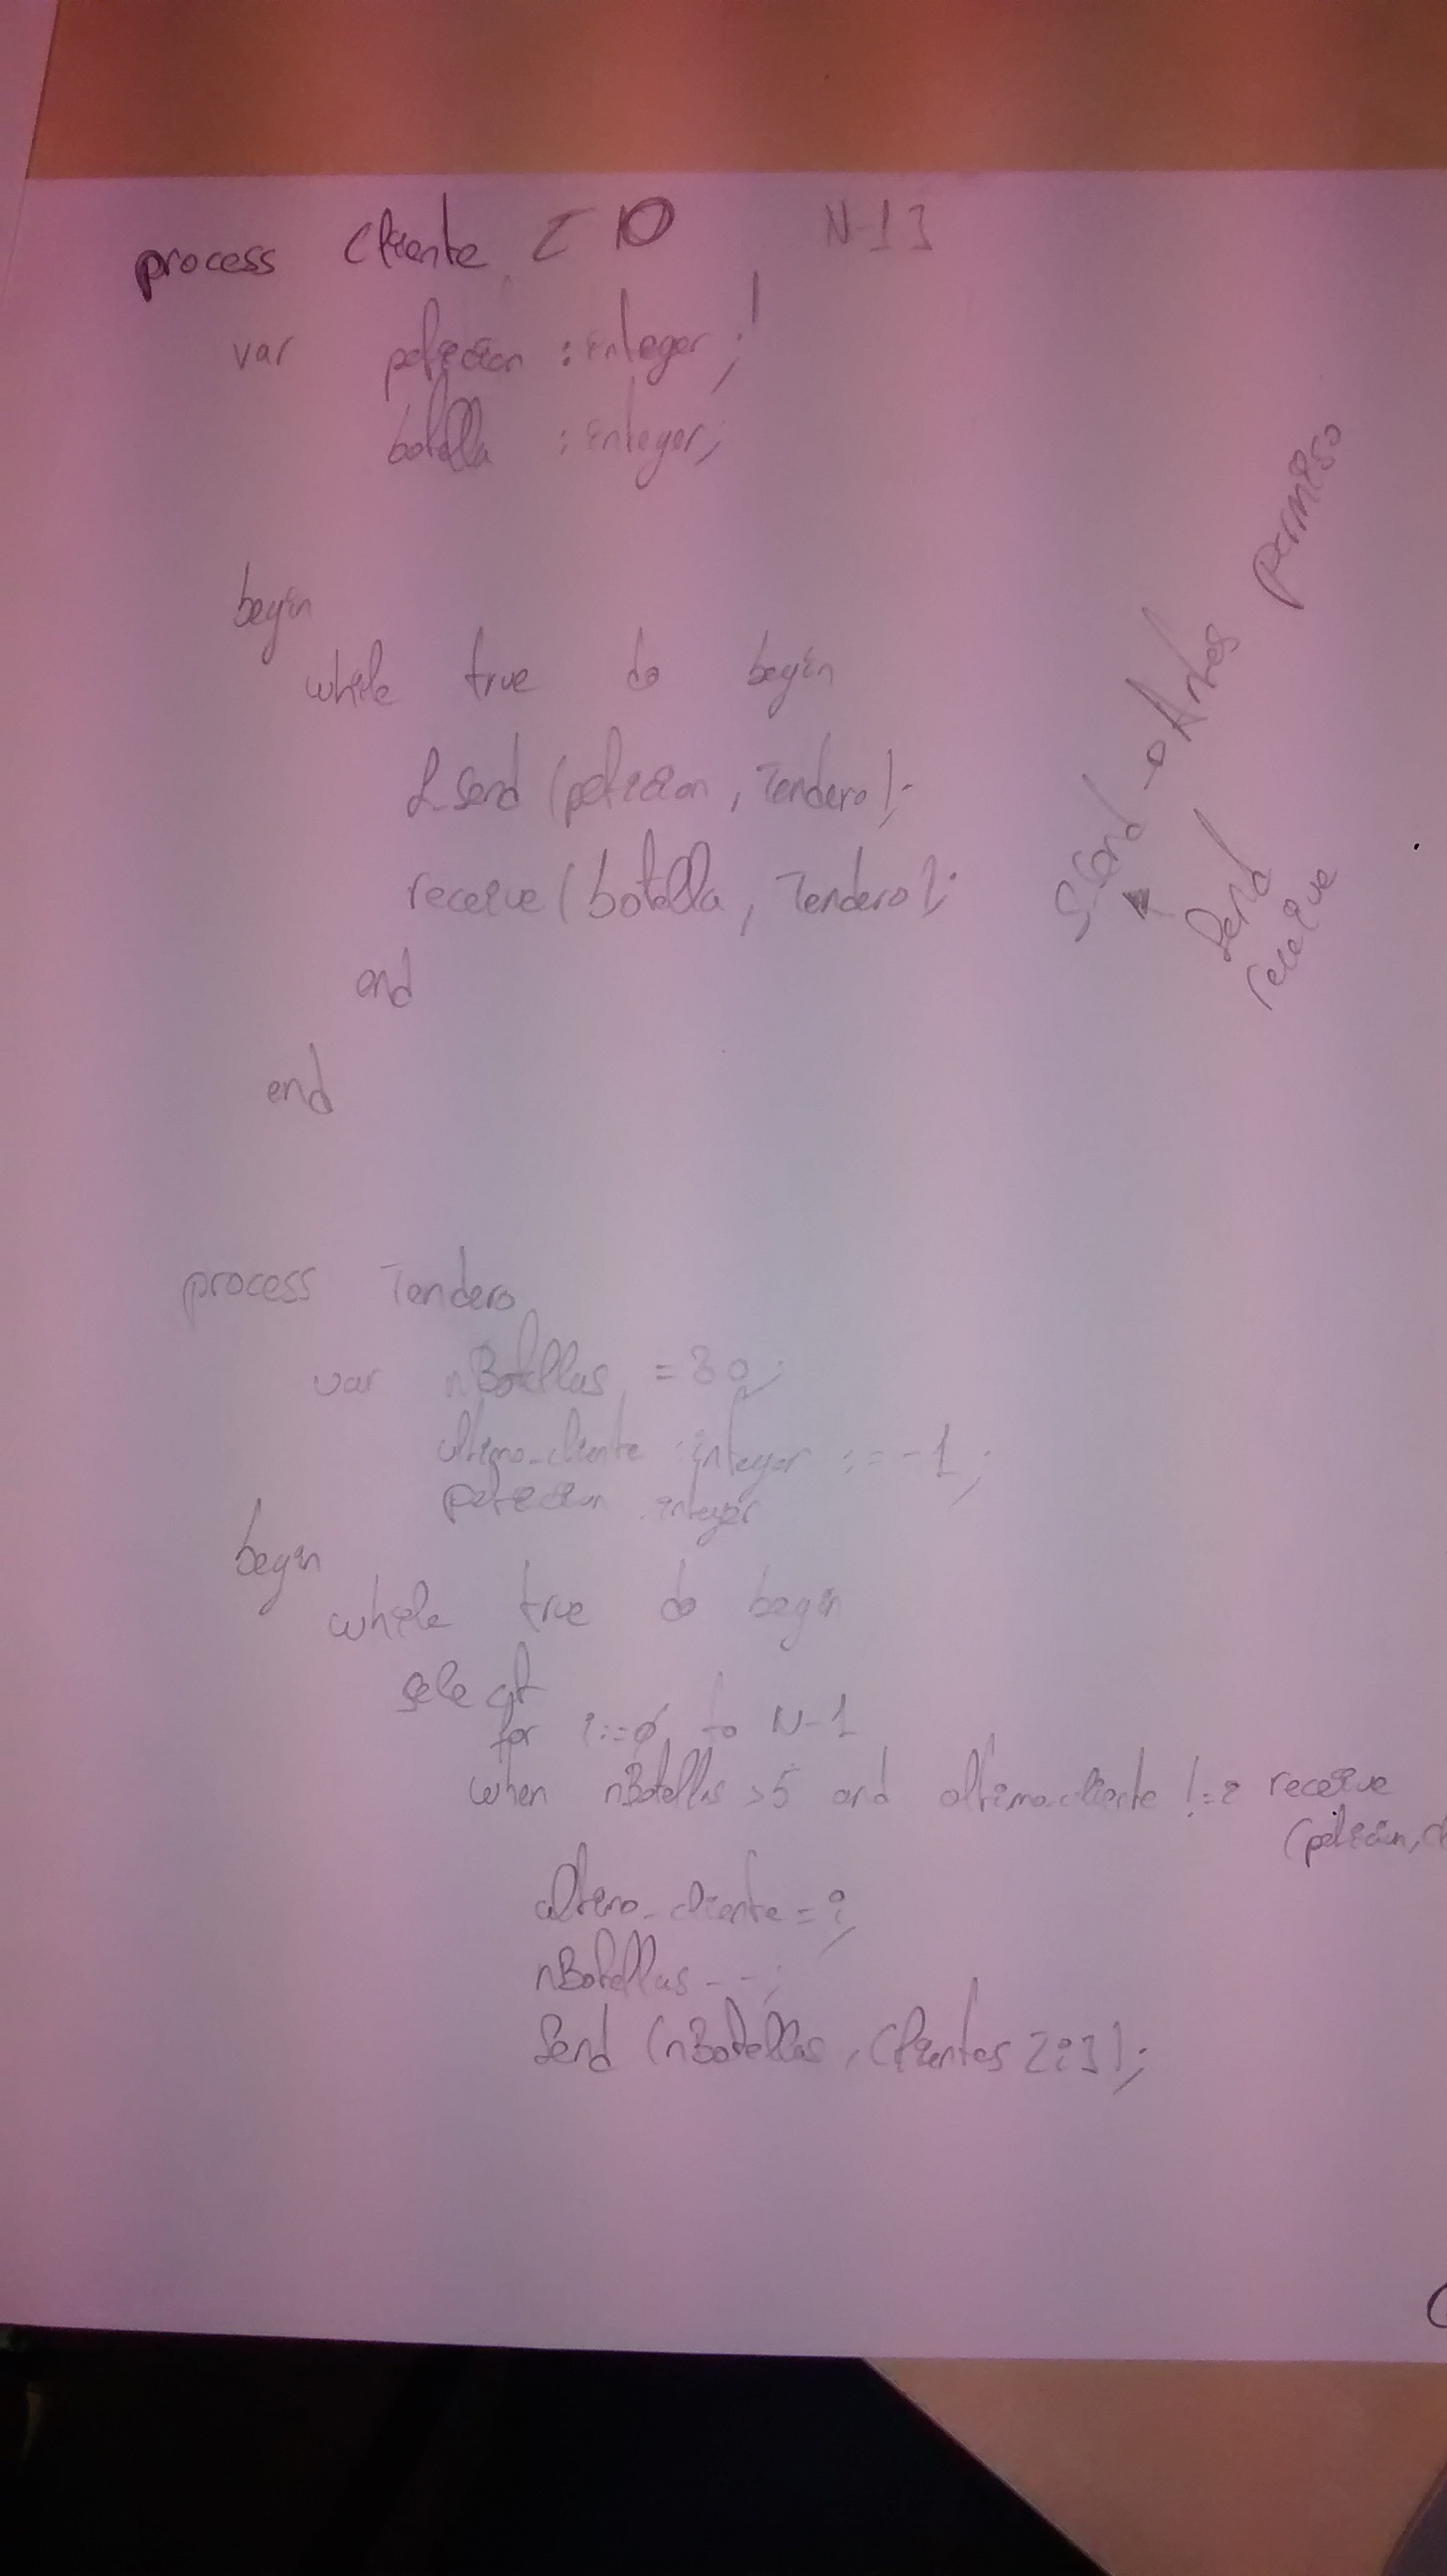 process Cliente [ 0 N-1]
var peticion : integer;
botella : integer;
begin
while true do begin
s_send (peticion, Tendero);
receive (botella, Tendero);
end
end
s_send → Antes permiso
send
receive
process Tendero
var nBotellas = 30;
ultimo_cliente : integer := -1;
peticion integer
begin
while true do begin
select
for i:=0 to N-1
when nBotellas >5 and ultimo_cliente != i receive
(peticion,
ultimo_cliente = i;
nBotellas--;
Send (nBotellas, Clientes [i]);